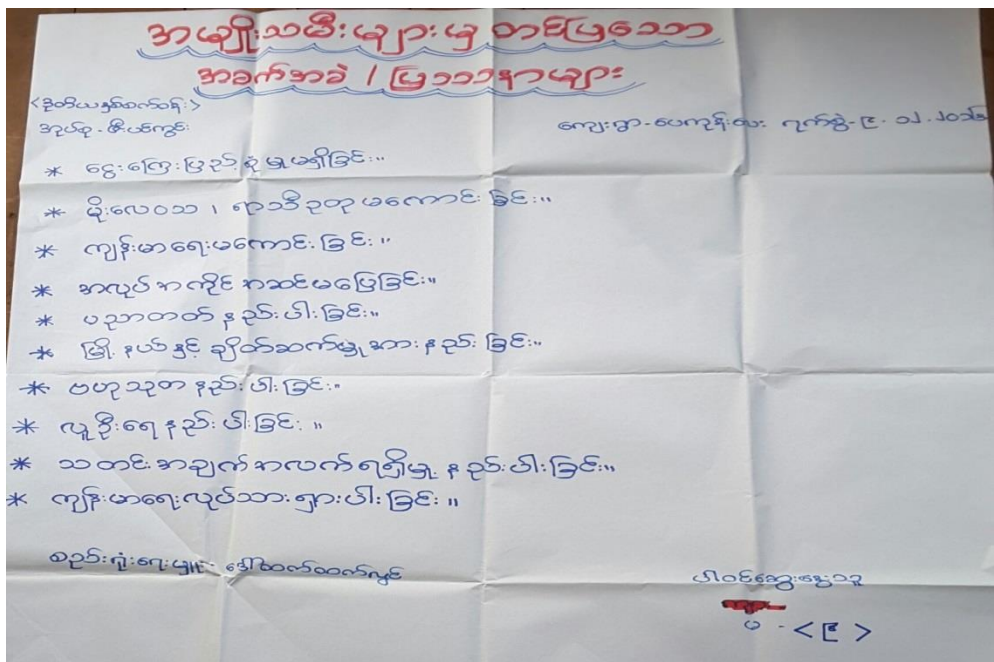 အမျိုးသမီးများမှ တင်ပြသော
အခက်အခဲ / ပြဿနာများ
<ဒုတိယနှစ်ဝက်ပန်း>
အုပ်စု - ဇီးပင်ကွင်း
ကျေးရွာ - ပေကုန်းလေး ရက်စွဲ - ၉.၁၂.၂၀၁၆
* ငွေကြေးပြည့်စုံမှုမရှိခြင်း။
* မိုးလေဝသ ၊ ရာသီဥတု မကောင်းခြင်း။
* ကျန်းမာရေးမကောင်းခြင်း။
* အလုပ်အကိုင်အဆင်မပြေခြင်း။
* ပညာတတ်နည်းပါးခြင်း။
* မြို့နယ်နှင့် ချိတ်ဆက်မှုအားနည်းခြင်း။
* ဗဟုသုတနည်းပါးခြင်း။
* လူဦးရေနည်းပါးခြင်း။
* သတင်းအချက်အလက်ရရှိမှုနည်းပါးခြင်း။
* ကျန်းမာရေးလုပ်သားရှားပါးခြင်း။
စည်းရုံးရေးမှူး - ဒေါ်ထက်ထက်လွင်
ပါဝင်ဆွေးနွေးသူ
မ - <၉>